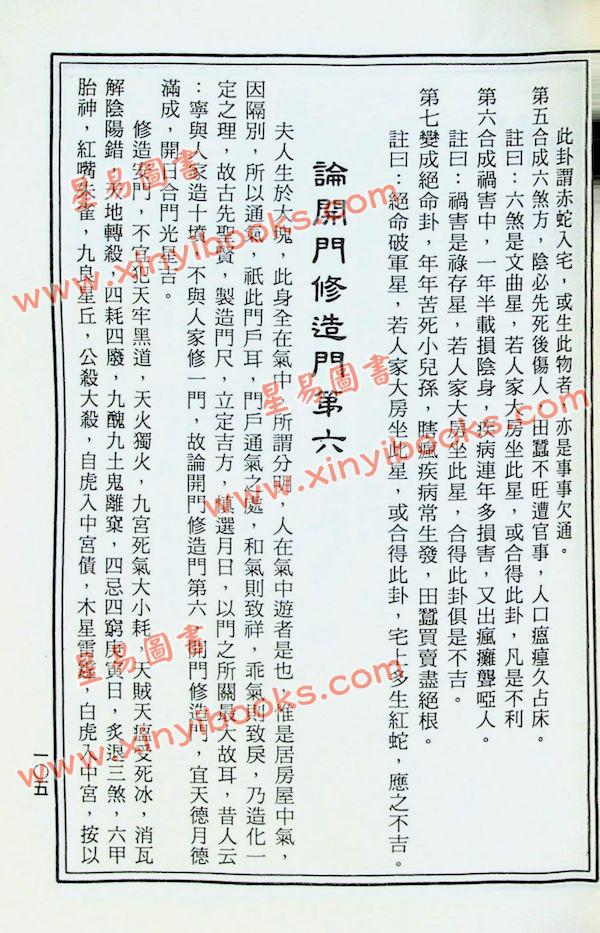 此卦謂赤蛇入宅，或生此物者，亦是事事欠通。
第五合成六煞方，陰必先死後傷人，田蠶不旺遭官事，人口瘟瘟久占床。
註曰：六煞是文曲星，若人家大房坐此星，或合得此卦，凡是不利
第六合成禍害中，一年半載損陰身，疾病連年多損害，又出瘋癱聾啞人。
註曰：禍害是祿存星，若人家大房坐此星，合得此卦俱是不吉。
第七變成絕命卦，年年苦死小兒孫，瞎瘋疾病常生發，田蠶買賣盡絕根。
註曰：絕命破軍星，若人家大房坐此星，或合得此卦，宅上多生紅蛇，應之不吉。
論開門修造門第六
夫人生於大塊，此身全在氣中，所謂分明，人在氣中遊者是也，惟是居房屋中氣，
因隔別，所以通氣，祇此門戶耳，門戶通氣之處，和氣則致祥，乖氣則致戾，乃造化一
定之理，故古先聖賢，製造門尺，立定吉方，慎選月日，以門之所關最大故耳，昔人云
：寧與人家造十墳，不與人家修一門，故論開門修造門第六，開門修造門，宜天德月德
滿成，開日合門光星吉。
修造安門，不宜犯天牢黑道，天火獨火，九宮死氣大小耗，天賊天瘟受死冰，消瓦
解陰陽錯，天地轉殺，四耗四廢，九醜九土鬼離窠，四忌四窮庚寅日，炙退三煞，六甲
胎神，紅嘴朱雀，九良星丘，公殺大殺，白虎入中宮債，木星雷霆，白虎入中宮，按以
一〇五
星易圖書
www.xinyibooks.com
星易圖書
www.xinyibooks.com
星易圖書
www.xinyibooks.com